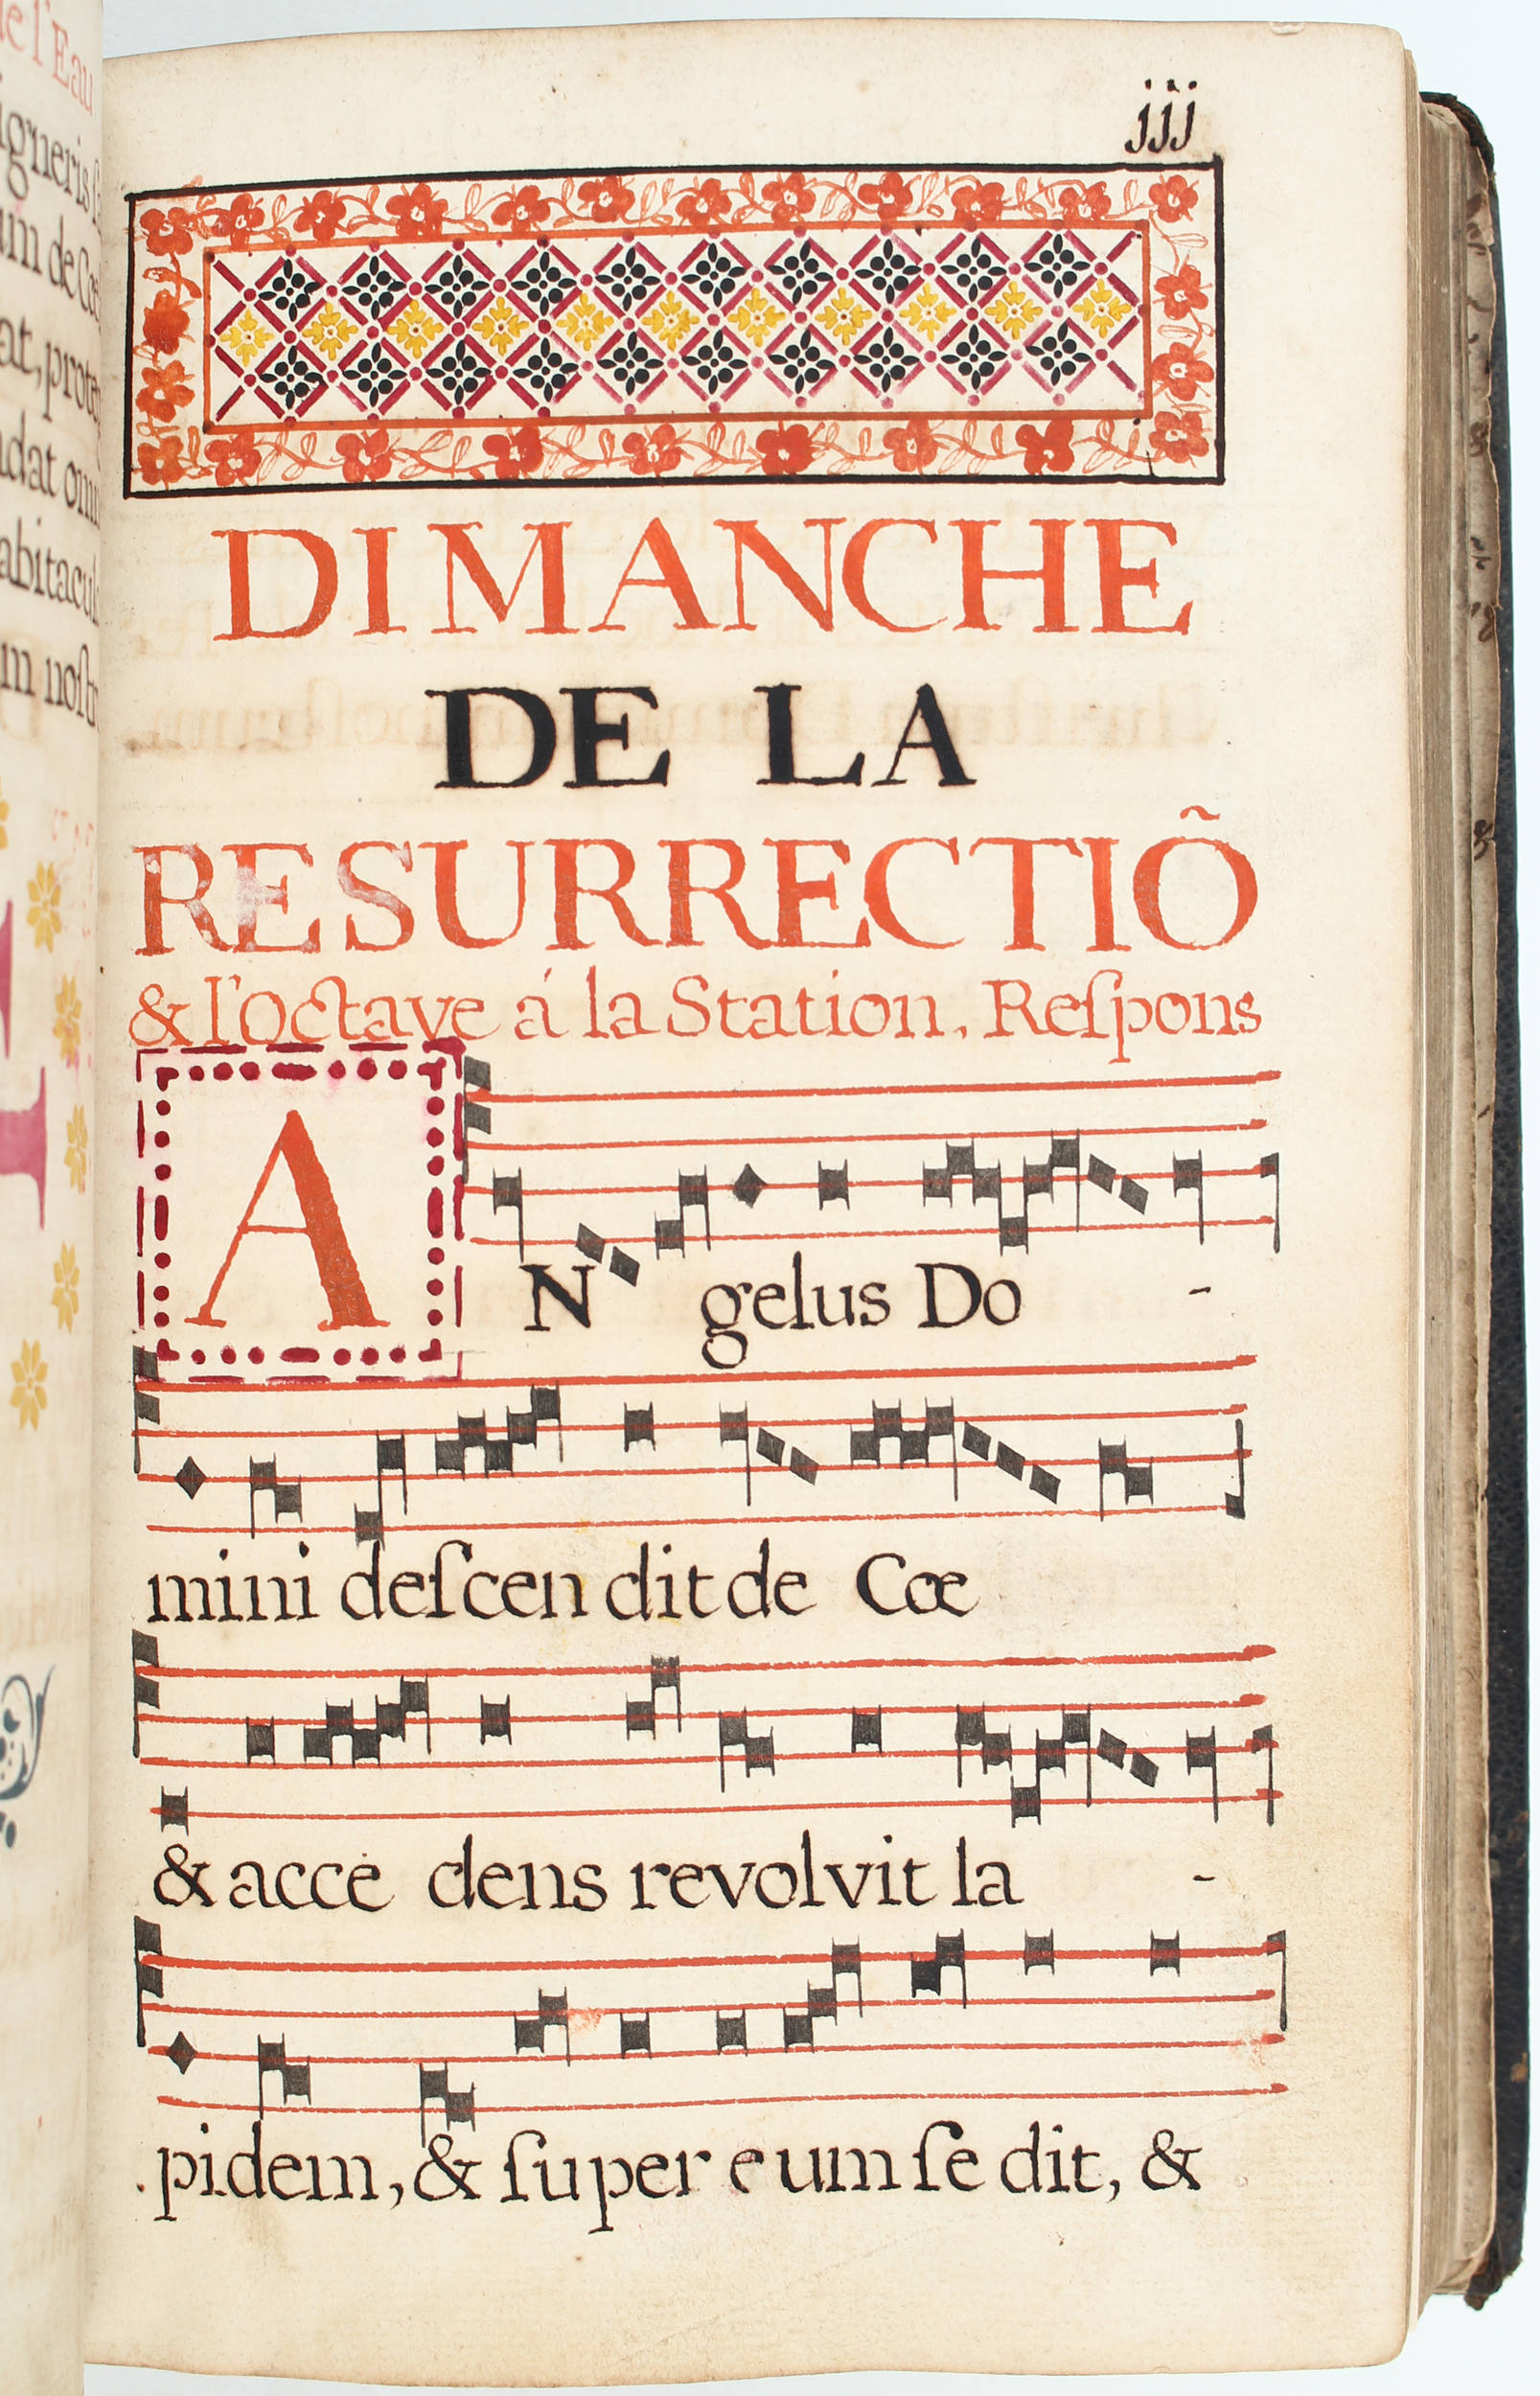 jjj
DIMANCHE
DE LA
RESURRECTIÕ
& l'Octave á la Station. Reſpons
AN gelus Do -
mini deſcen dit de Cœ
& acce dens revolvit la -
pidem, & ſuper eum ſe dit, &
de l'Eau
igneris
um de Cœ
at, prote
dat om
abitacul
m noſt